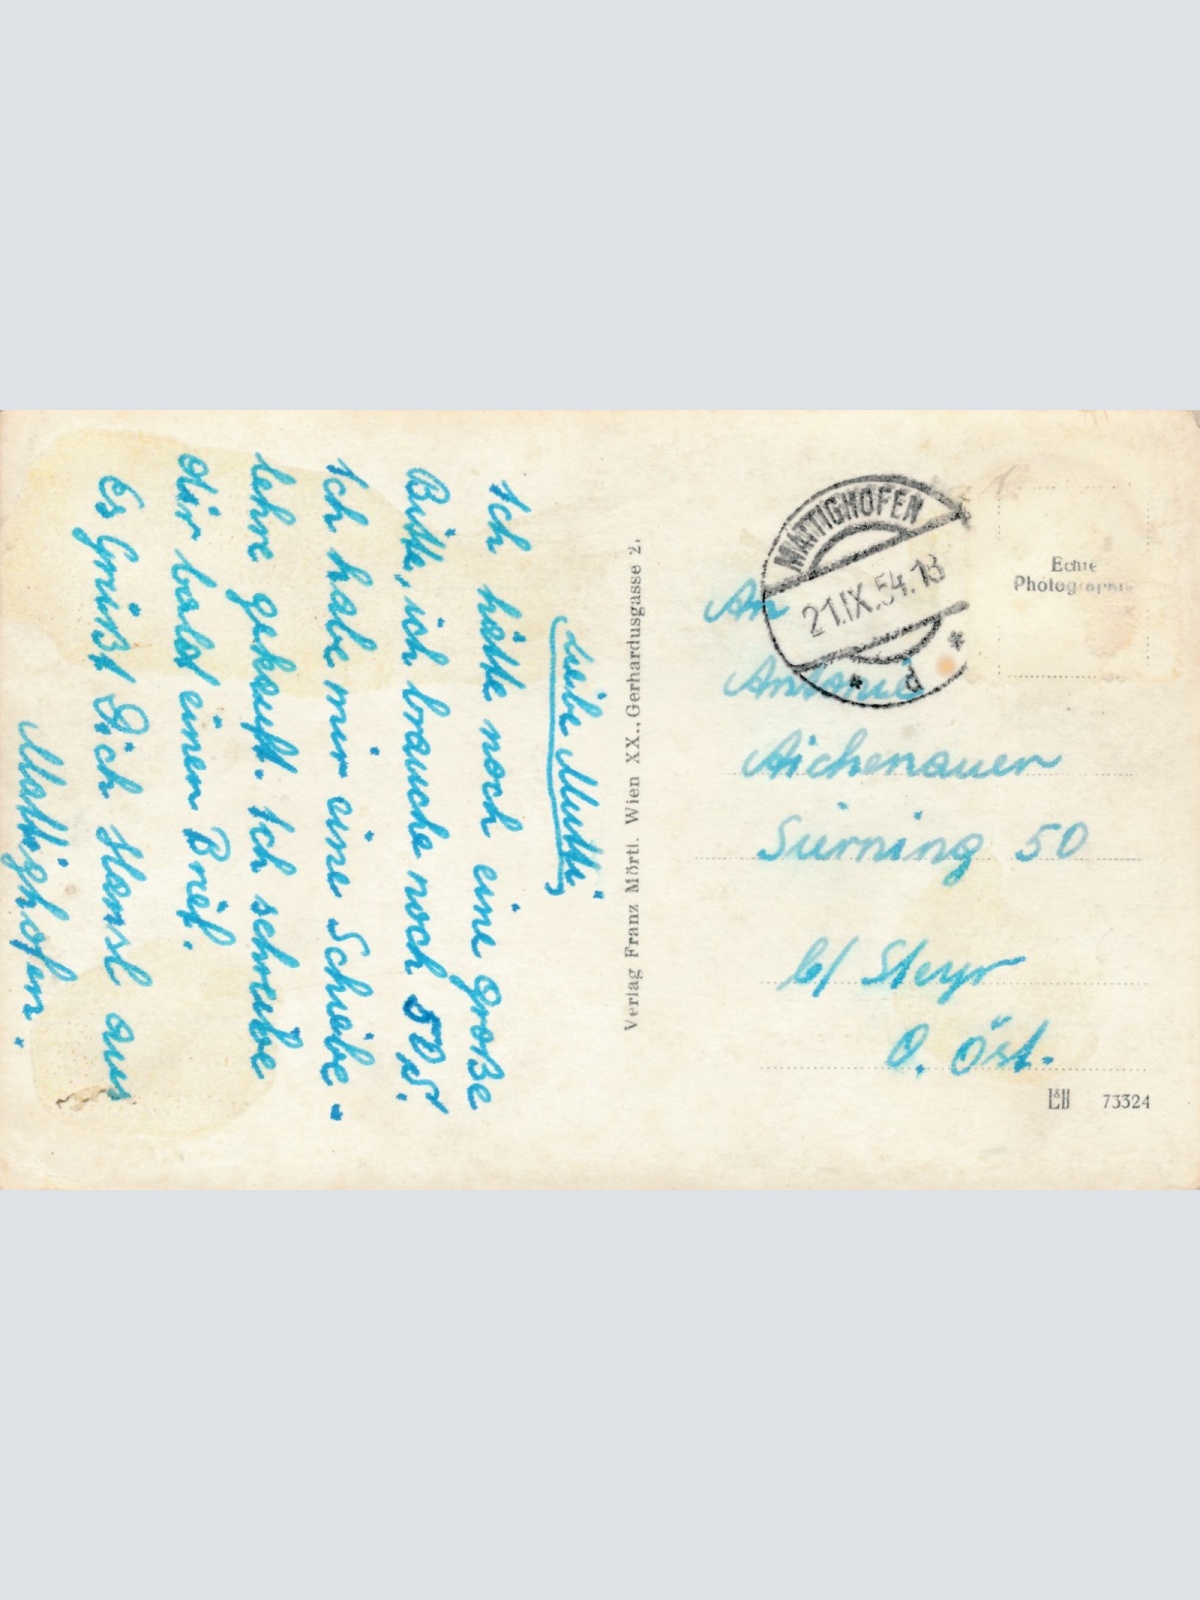 Liebe Mutti,
Ich hätte noch eine große
Bitte, ich brauche noch 50 S!
Ich habe mir eine Scheibe-
lehre gekauft. Ich schreibe
dir bald einen Brief.
Es Grüßt Dich Hansl aus
Mattighofen.
Verlag Franz Mörtl. Wien XX., Gerhardusgasse 2.
MATTIGHOFEN
21.IX.54.18
* d *
Echte
Photographie
An
Antonie
Aichenauer
Sierning 50
b/ Steyr
O. Öst.
L&B 73324